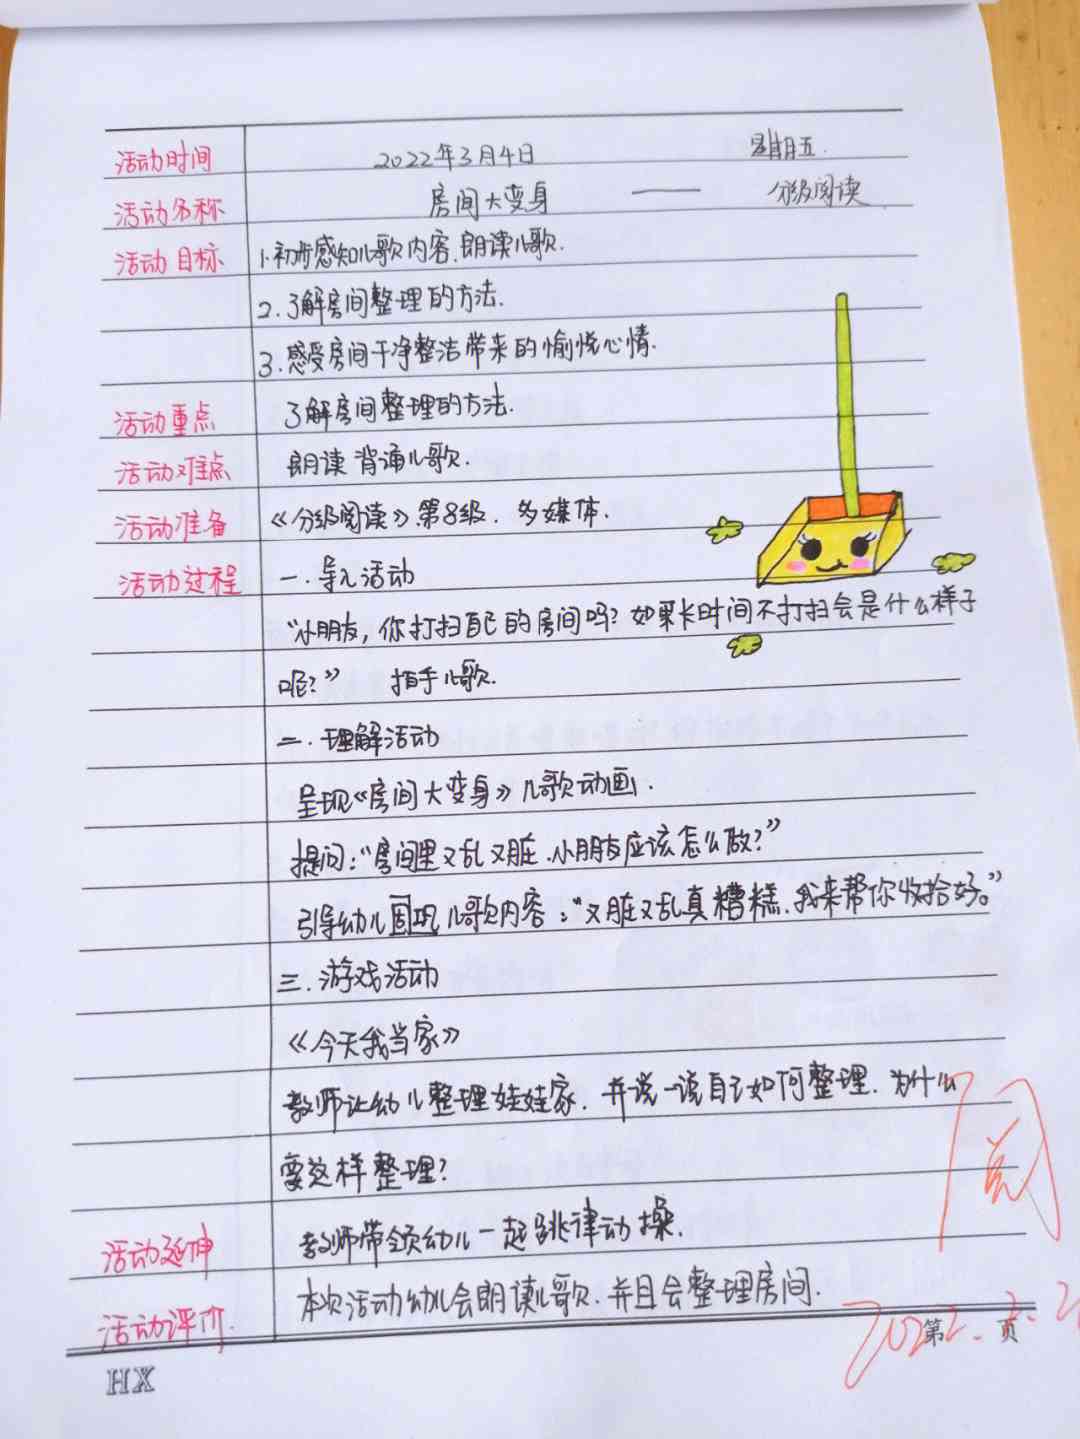 活动时间 2022年3月4日 星期五.
活动名称 房间大变身 —— 分级阅读
活动目标 1.初步感知儿歌内容.朗读儿歌.
2.了解房间整理的方法.
3.感受房间干净整洁带来的愉悦心情.
活动重点 了解房间整理的方法.
活动难点 朗读 背诵儿歌.
活动准备 《分级阅读》.第8级. 多媒体.
活动过程 一.导入活动
“小朋友,你打扫自己的房间吗?如果长时间不打扫会是什么样子
呢?” 拍手儿歌.
二.理解活动
呈现《房间大变身》儿歌动画.
提问:“房间里又乱又脏.小朋友应该怎么做?”
引导幼儿回巩儿歌内容:“又脏又乱真糟糕.我来帮你收拾好。”
三.游戏活动
《今天我当家》
教师让幼儿整理娃娃家.并说一说自己如何整理.为什么
要这样整理?
活动延伸 教师带领幼儿一起跳律动操.
活动评价. 本次活动幼儿会朗读儿歌.并且会整理房间.
阅
第 页
HX